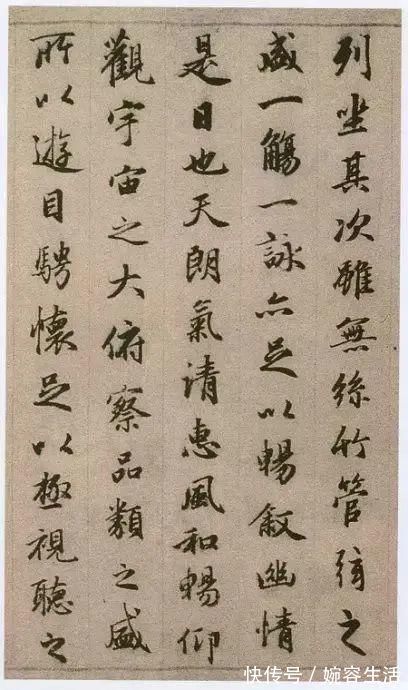 列坐其次雖無絲竹管弦之
盛一觴一詠亦足以暢敘幽情
是日也天朗氣清惠風和暢仰
觀宇宙之大俯察品類之盛
所以遊目騁懷足以極視聽之
快传号/婉容生活